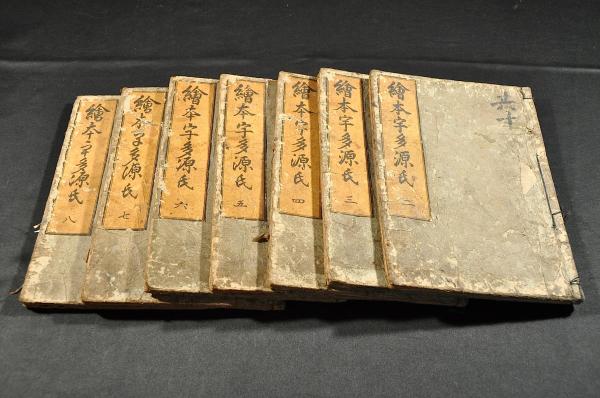 繪本宇多源氏 二
繪本宇多源氏 三
繪本宇多源氏 四
繪本宇多源氏 五
繪本宇多源氏 六
繪本宇多源氏 七
繪本宇多源氏 八